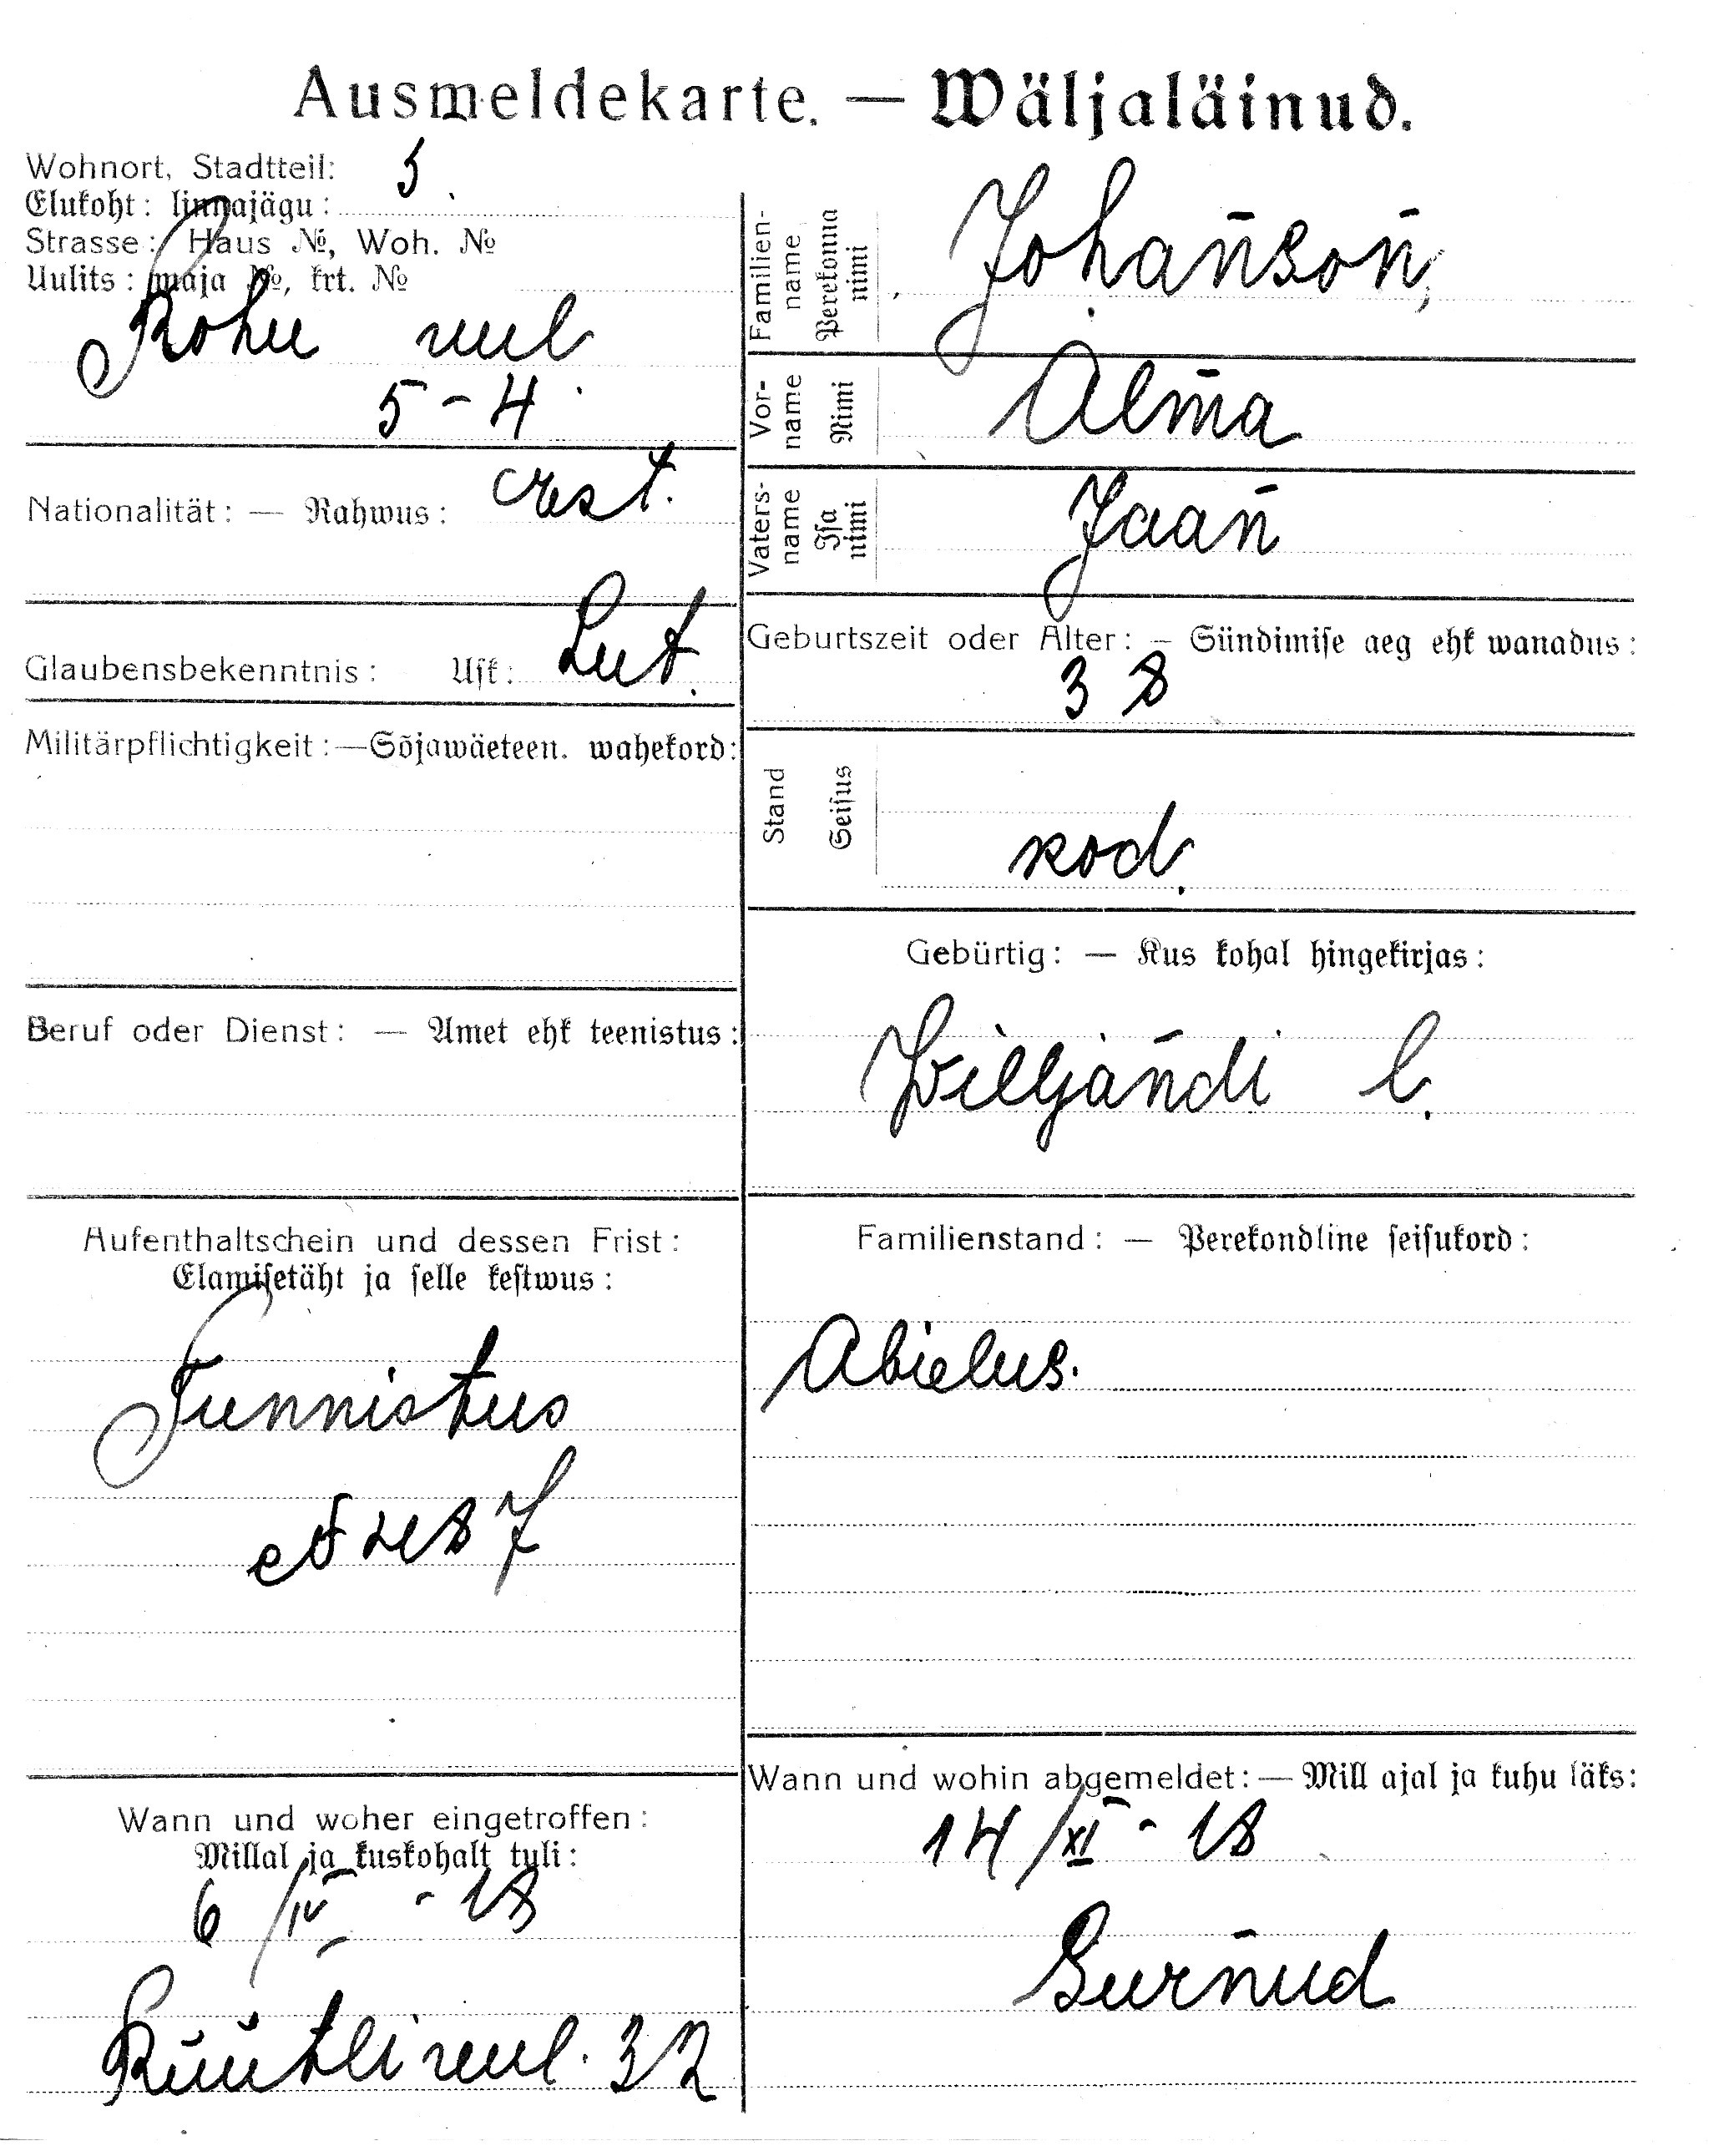 Ausmeldekarte. — Wäljaläinud.
Wohnort, Stadtteil: 5.
Elukoht: linnajägu:
Strasse: Haus №, Woh. №
Uulits: maja №, krt. №
Rohu uul
5-4.
Nationalität: — Rahwus: eest.
Glaubensbekenntnis: Usk: Lut.
Militärpflichtigkeit:—Sõjawäeteen. wahekord:
Beruf oder Dienst: — Amet ehk teenistus:
Aufenthaltschein und dessen Frist:
Elamisetäht ja selle kestwus:
Tunnistus
Wann und woher eingetroffen:
Millal ja kuskohalt tuli:
6/IV - 18
Rüütli uul. 32
Familien-
name
Perekonna
nimi
Johanson,
Vor-
name
Nimi
Alma
Vaters-
name
Isa
nimi
Jaan
Geburtszeit oder Alter: — Sündimise aeg ehk wanadus:
38
Stand
Seisus
kod.
Gebürtig: — Kus kohal hingekirjas:
Wiljandi l.
Familienstand: — Perekondline seisukord:
Abielus.
Wann und wohin abgemeldet:—Mill ajal ja kuhu läks:
14/XI - 18
Surnud